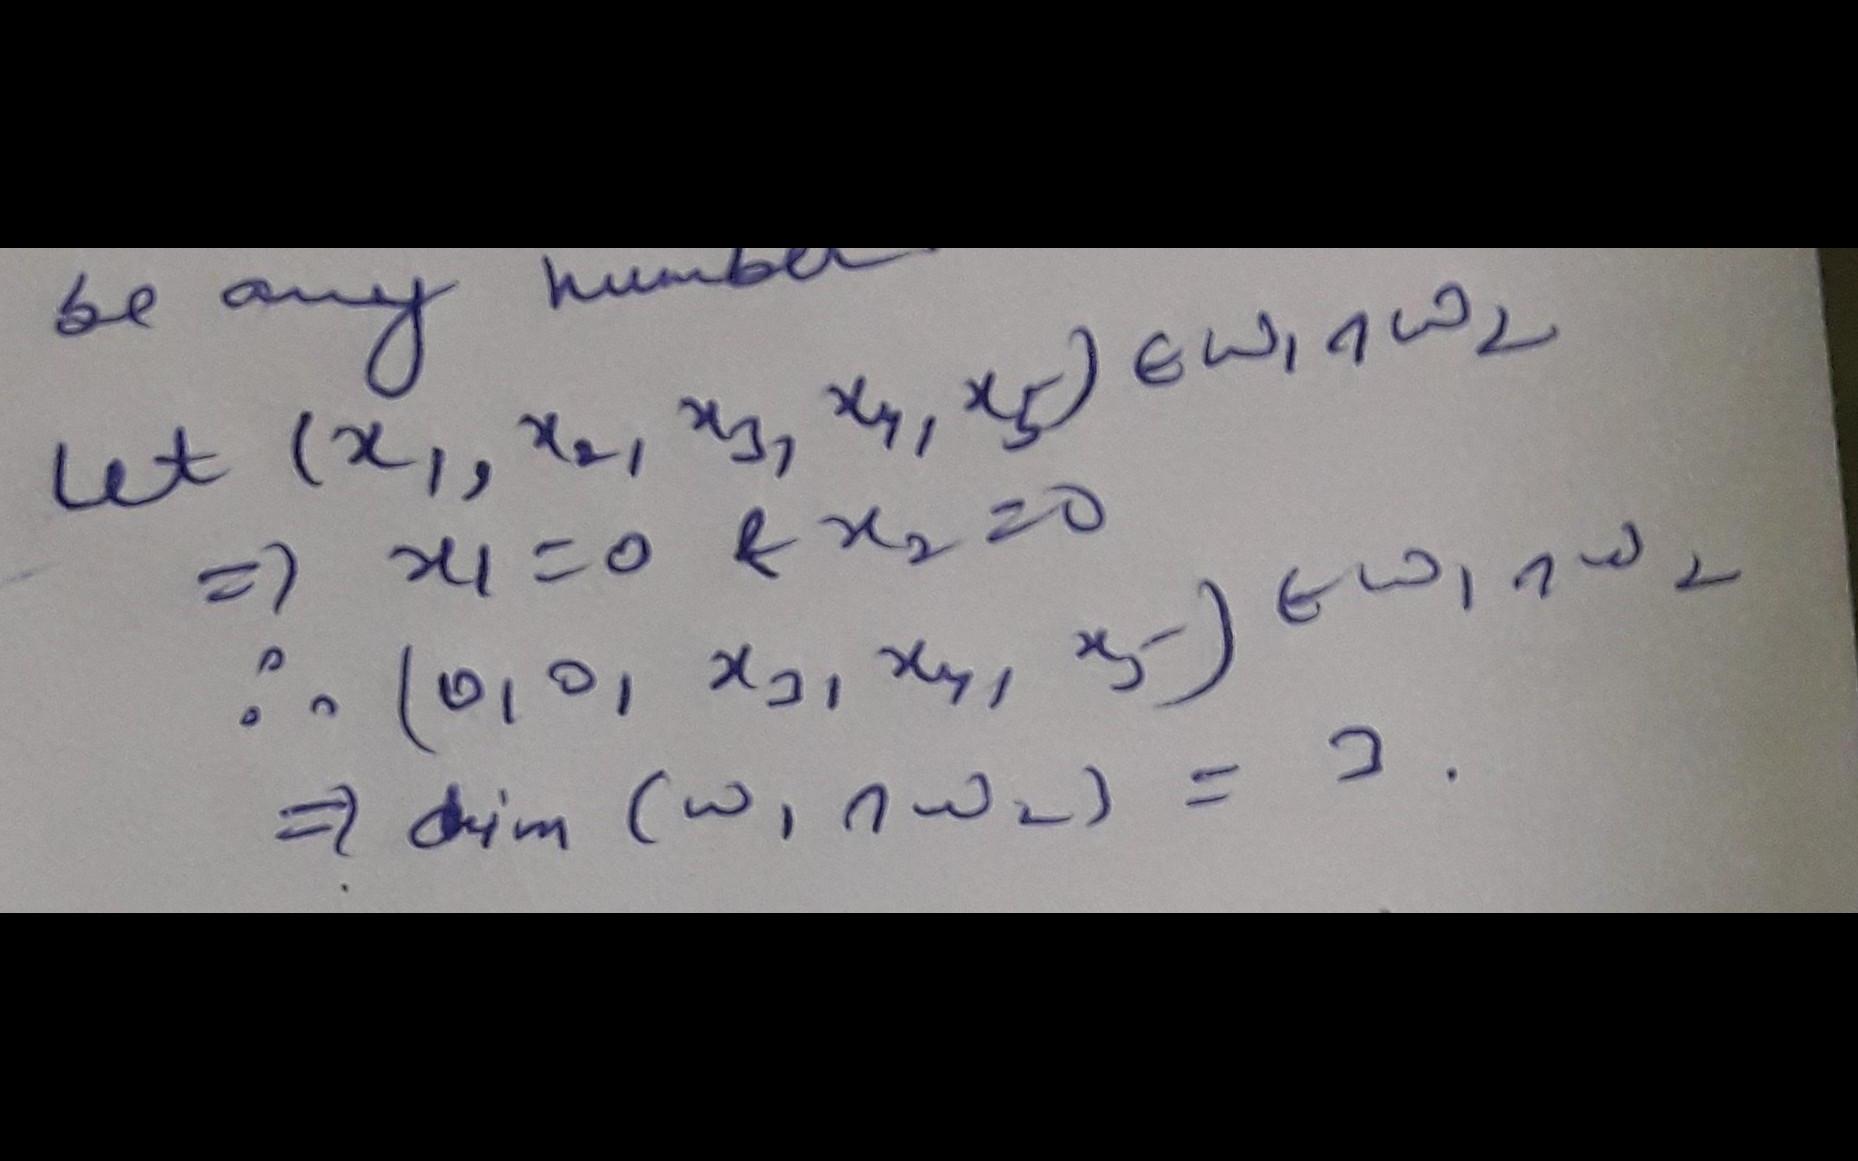 be any number
Let (x₁, x₂, x₃, x₄, x₅) ∈ W₁ ∩ W₂
⇒ x₁ = 0 & x₂ = 0
∴ (0, 0, x₃, x₄, x₅) ∈ W₁ ∩ W₂
⇒ dim (W₁ ∩ W₂) = 3.